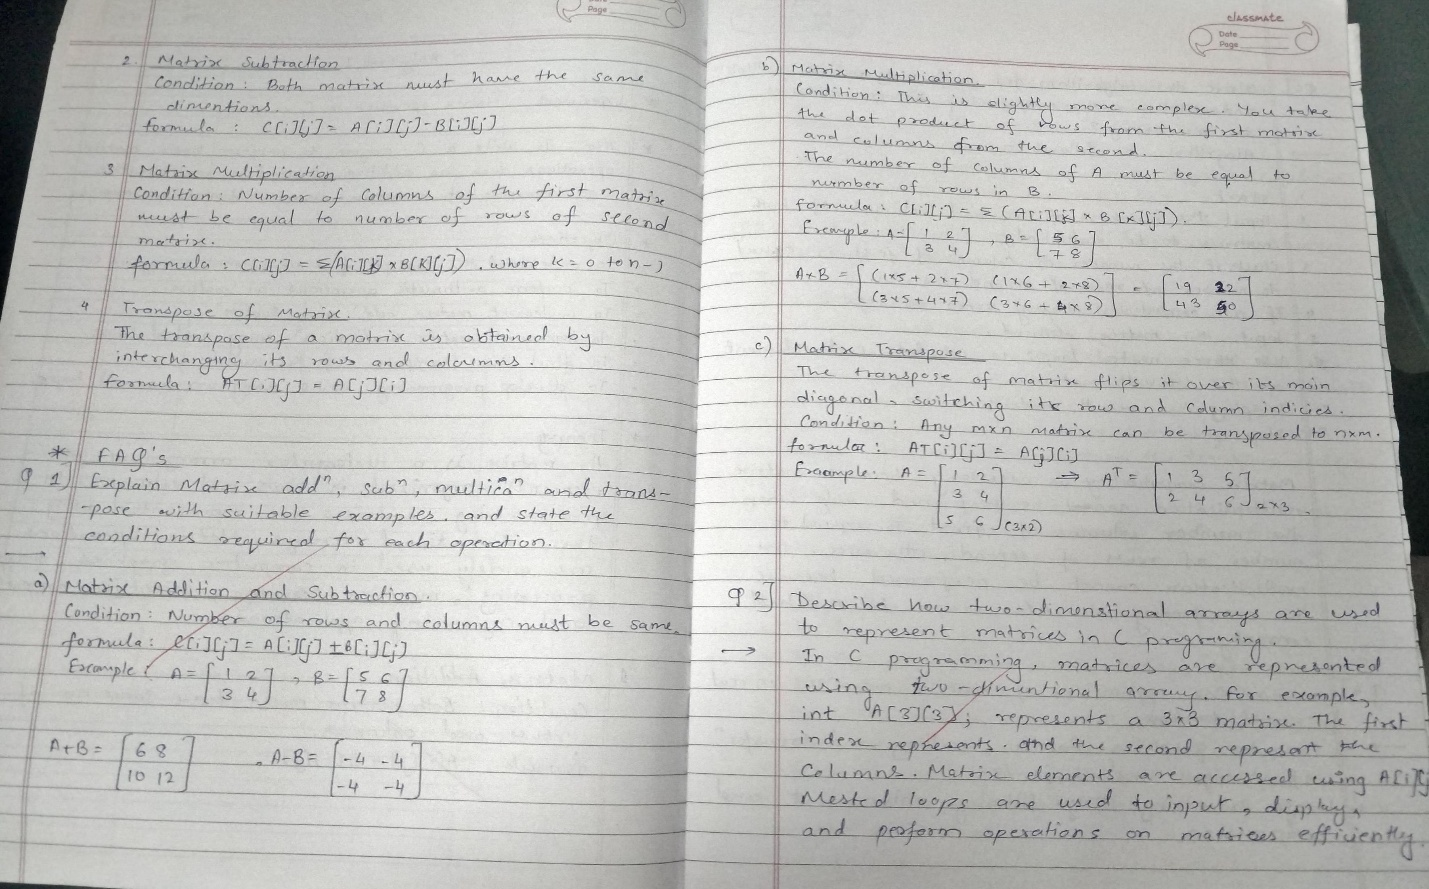 Page
2. Matrix Subtraction
Condition : Both matrix must have the same
dimentions.
formula : C[i][j] = A[i][j]-B[i][j]
3 Matrix Multiplication
Condition : Number of Columns of the first matrix
must be equal to number of rows of second
matrix.
formula : C[i][j] = Σ(A[i][k] x B[k][j]) , where k = 0 to n-1
4 Transpose of Matrix.
The transpose of a matrix is obtained by
interchanging its rows and columns.
formula : AT[i][j] = A[j][i]
* FAQ's
Q 1] Explain Matrix addⁿ, subⁿ, multicaⁿ and trans-
-pose with suitable examples. and state the
conditions required for each operation.
→
a) Matrix Addition and Subtraction.
Condition : Number of rows and columns must be same.
formula : C[i][j] = A[i][j] ± B[i][j]
Example : A = [ 1 2 , B = [ 5 6
3 4 ] 7 8 ]
A+B = [ 6 8 , A-B = [ -4 -4
10 12 ] -4 -4 ]
classmate
Date
Page
b) Matrix Multiplication
Condition : This is slightly more complex. You take
the dot product of rows from the first matrix
and columns from the second.
The number of columns of A must be equal to
number of rows in B.
formula : C[i][j] = Σ (A[i][k] x B[k][j]).
Example : A = [ 1 2 , B = [ 5 6
3 4 ] 7 8 ]
A x B = [ (1x5 + 2x7) (1x6 + 2x8) = [ 19 22
(3x5 + 4x7) (3x6 + 4x8) ] 43 50 ]
c) Matrix Transpose
The transpose of matrix flips it over its main
diagonal, switching its row and column indicies.
Condition : Any mxn matrix can be transposed to nxm.
formular : AT[i][j] = A[j][i]
Example : A = [ 1 2 ⇒ Aᵀ = [ 1 3 5
3 4 2 4 6 ] 2x3 .
5 6 ] (3x2)
Q 2] Describe how two-dimenstional arrays are used
to represent matrices in C progrmming.
→ In C programming, matrices are represented
using two-dimentional array. for example,
int A[3][3]; represents a 3x3 matrix. The first
index represents. and the second represent the
Columns. Matrix elements are accessed using A[i][j
Nested loops are used to input, display,
and perform operations on matrices efficiently.